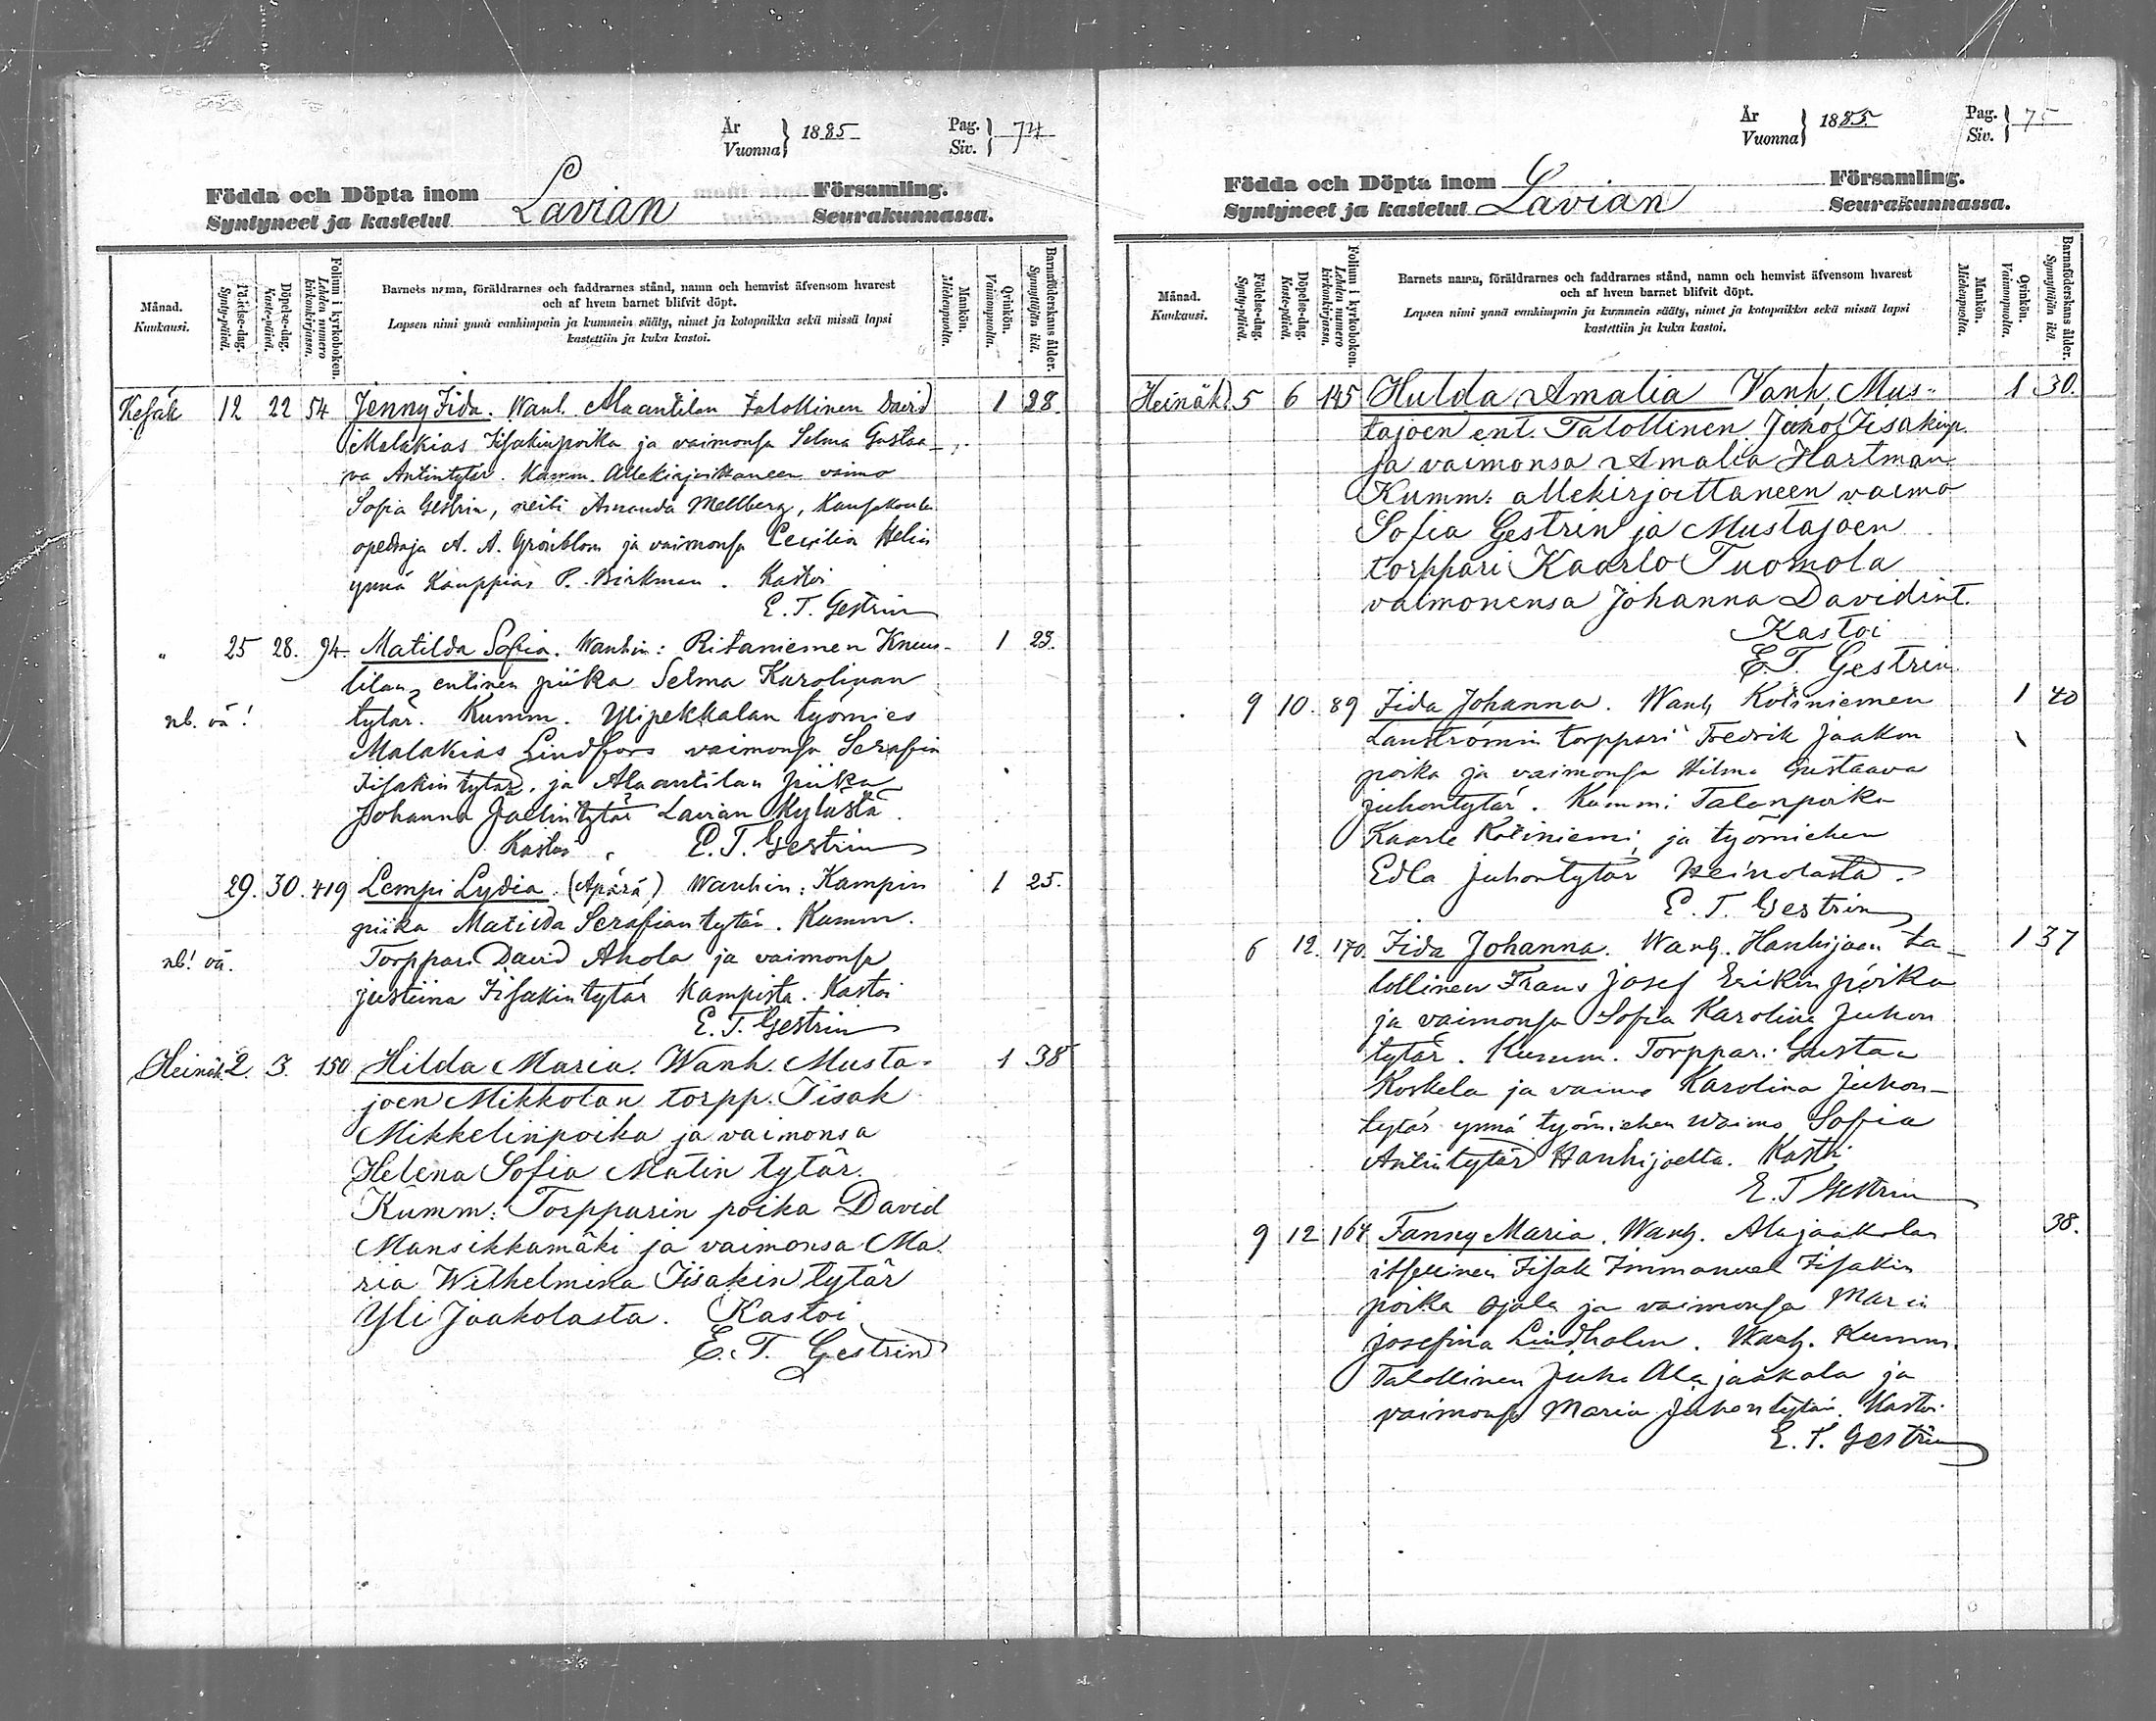 År
Vuonna } 1885
Pag.
Siv. } 74
Födda och Döpta inom
Syntyneet ja kastetut
Lavian
Församling.
Seurakunnassa.
Månad.
Kuukausi.
Födelse-dag.
Synty-päivä.
Döpelse-dag.
Kaste-päivä.
Folium i kyrkoboken.
Lehden numero kirkonkirjassa.
Barnets namn, föräldrarnes och faddrarnes stånd, namn och hemvist äfvensom hvarest
och af hvem barnet blifvit döpt.
Lapsen nimi ynnä vanhimpain ja kummein sääty, nimet ja kotopaikka sekä missä lapsi
kastettiin ja kuka kastoi.
Mankön.
Miehenpuolta.
Qvinkön.
Vaimonpuolta.
Barnaföderskans ålder.
Synnyttäjän ikä.
Kesäk 12 22 54 Jenny Iida. Wanh. Alaantilan talollinen David 1 28.
Malakias Iisakinpoika ja vaimonsa Selma Gustaa-
va Antintytär. Kumm. Allekirjoittaneen vaimo
Sofia Gestrin, neiti Amanda Mellberg, Kansakoulu
opettaja A. A. Grönblom ja vaimonsa Cecilia Helin
ynnä Kauppias P. Birkman. Kastoi
E. T. Gestrin
" 25 28. 94. Matilda Sofia. Wanhin: Ritaniemen Knuu- 1 23.
tilan entinen piika Selma Karolinan
nb. vä! tytär. Kumm. Ylipekkalan työmies
Malakias Lindfors vaimonsa Serafia
Iisakintytär, ja Alaantilan piika
Johanna tytär Lavian Kylästä.
Kastoi E. T. Gestrin
29. 30. 419 Lempi Lydia. (Äpärä) Wanhin: Kampin 1 25.
piika Matilda Serafiantytär. Kumm.
nb! vä. Torppari David Ahola ja vaimonsa
Justiina Iisakintytär Kampista. Kastoi
E. T. Gestrin
Heinäk. 2. 3. 150 Hilda Maria. Wanh. Musta- 1 38
joen Mikkolan torpp. Iisak
Mikkelinpoika ja vaimonsa
Helena Sofia Matin tytär.
Kumm: Torpparin poika David
Mansikkamäki ja vaimonsa Ma-
ria Wilhelmina Iisakin tytär
Yli Jaakolasta. Kastoi
E. T. Gestrin
År
Vuonna } 1885.
Pag.
Siv. } 75
Födda och Döpta inom
Syntyneet ja kastetut
Lavian
Församling.
Seurakunnassa.
Månad.
Kuukausi.
Födelse-dag.
Synty-päivä.
Döpelse-dag.
Kaste-päivä.
Folium i kyrkoboken.
Lehden numero kirkonkirjassa.
Barnets namn, föräldrarnes och faddrarnes stånd, namn och hemvist äfvensom hvarest
och af hvem barnet blifvit döpt.
Lapsen nimi ynnä vanhimpain ja kummein sääty, nimet ja kotopaikka sekä missä lapsi
kastettiin ja kuka kastoi.
Mankön.
Miehenpuolta.
Qvinkön.
Vaimonpuolta.
Barnaföderskans ålder.
Synnyttäjän ikä.
Heinäk. 5 6 145 Hulda Amalia Vanh. Mus- 1 30.
tajoen ent. Talollinen Juho Iisakinp.
ja vaimonsa Amalia Hartman.
Kumm: allekirjoittaneen vaimo
Sofia Gestrin ja Mustajoen
torppari Kaarlo Tuomola
vaimonensa Johanna Davidint.
Kastoi
E. T. Gestrin.
9 10. 89 Iida Johanna. Wanh. Kotiniemen 1 40
Lanströmin torppari Fredrik Jaakon
poika ja vaimonsa Hilma Gustaava
Juhontytär. Kummi Talonpoika
Kaarle Kotiniemi, ja työmiehen
Edla Juhontytär Heinolasta.
E. T. Gestrin
6 12. 170. Iida Johanna. Wanh. Hanhijoen ta- 1 37
lollinen Frans Josef Erikin poika
ja vaimonsa Sofia Karolina Juhon
tytär. Kumm. Torppari Gustaa
Koskela ja vaimo Karolina Juhon-
tytär ynnä työmiehen waimo Sofia
Antintytär Hanhijoelta. Kastoi
E. T. Gestrin
9 12 164 Fanny Maria. Wanh. Alajaakolan 38.
itsellinen Iisak Immanuel Iisakin
poika Ojala ja vaimonsa Maria
Josefina Lindholm. Wanh. Kumm.
Talollinen Juho Alajaakola ja
vaimonsa Maria Juhontytär. Kastoi
E. T. Gestrin